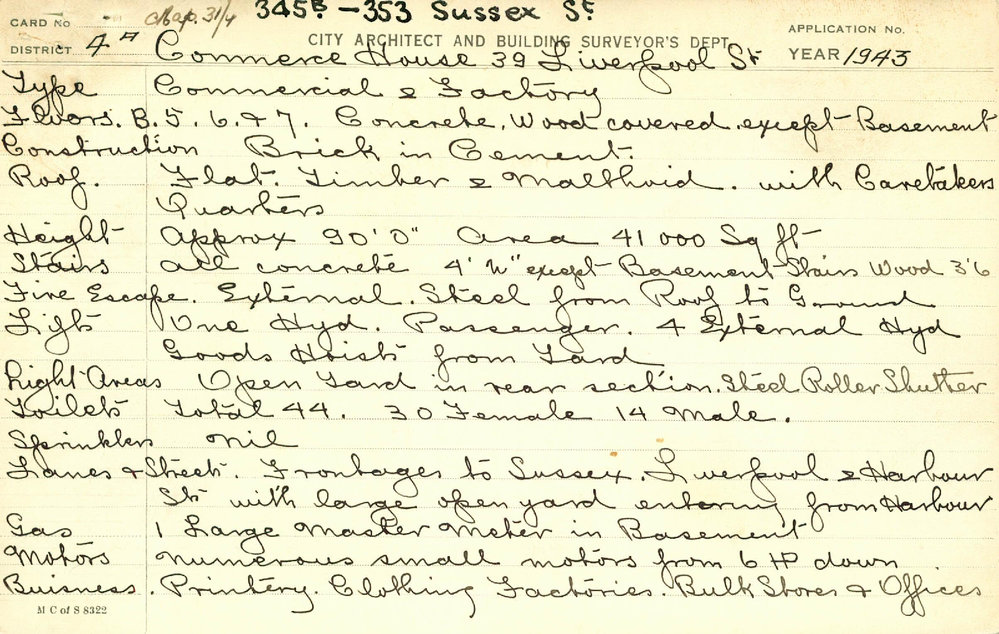 345B - 353 Sussex St
CARD No Chap. 31/4
APPLICATION No.
CITY ARCHITECT AND BUILDING SURVEYOR'S DEPT
DISTRICT 4A Commerce House 39 Liverpool St YEAR 1943
Type Commercial & Factory
Floors. B. 5. 6. & 7. Concrete. Wood covered except Basement
Construction Brick in Cement.
Roof. Flat. Timber & Malthoid. with Caretakers
Quarters
Height Approx 90'0" Area 41 000 Sq ft
Stairs all concrete 4' W" except Basement Stairs Wood 3'6
Fire Escape. External. Steel from Roof to Ground
Lifts One Hyd. Passenger. 4 External Hyd
Goods Hoists from Yard
Light Areas Open Yard in rear section. Steel Roller Shutter
Toilets Total 44. 30 Female 14 Male.
Sprinklers nil
Lanes & Streets. Frontages to Sussex. Liverpool & Harbour
Sts with large open yard entering from Harbour
Gas 1 Large Master Meter in Basement
Motors numerous small motors from 6 HP down
Buisness. Printery. Clothing Factories. Bulk Stores & Offices
M C of S 8322